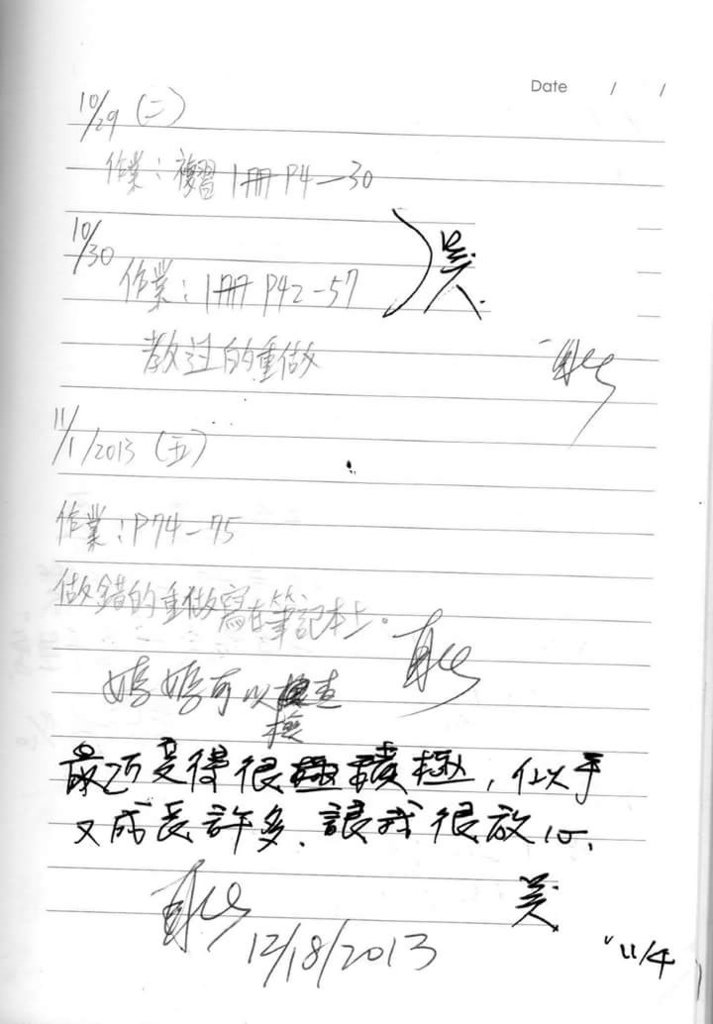 Date / /
10/29 (二)
作業：複習 1冊 P4—30
10/30
作業：1冊 P42-57
美
教过的重做
11/1/2013 (五)
作業：P74-75
做錯的重做寫在筆記本上。
媽媽可以檢查
最近變得很積極，似乎
又成長許多、讓我很放心、
美
12/18/2013
11/4